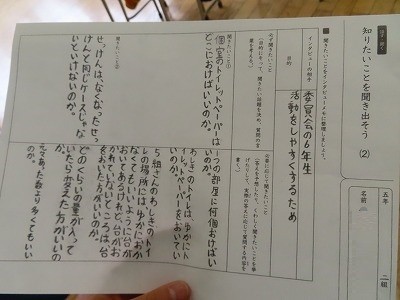 話す・聞く
知りたいことを聞き出そう (2)
五年 二組
名前
聞きたいことをインタビューメモに整理しましょう。
インタビューの相手
委員会の6年生
目的
活動をしやすくするため
必ず聞きたいこと
聞きたいこと①
個室のトイレットペーパーは
どこにおけばいいのか。
1つの部屋に何個おけばい
いのか。
わしきのトイレは、ゆかにト
イレットペーパーをおいてい
いのか。
5組さんのわしきのトイ
レの場所には、ゆかにおか
なくてもいいように台が
おいてあるけれど、台がお
かれていないところは台
をおいた方がいいのか。
聞きたいこと②
せっけんは、なくなったせっ
けんと同じケースじゃな
いといけないのか。
どのくらいの量が入って
いたらかえた方がいいの
か。